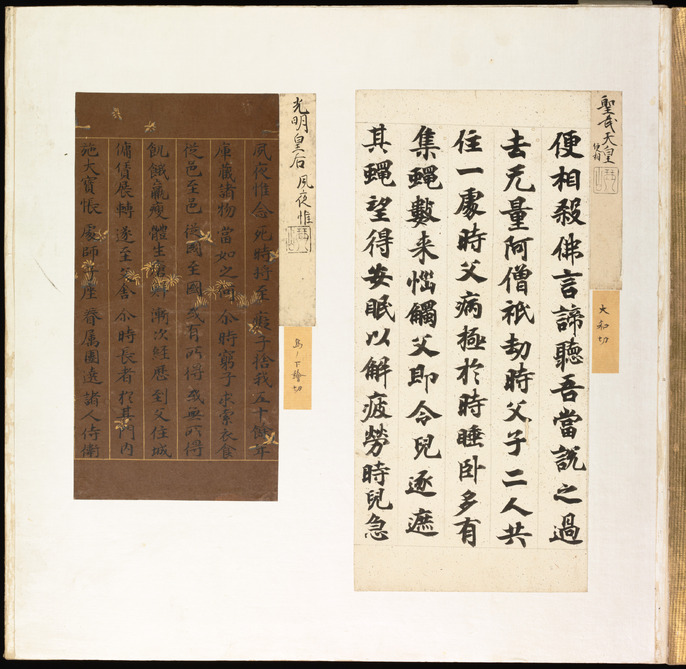 聖武天皇
便相
大和切
便相殺佛言諦聽吾當説之過
去无量阿僧祇劫時父子二人共
住一處時父病極於時睡卧多有
集蠅數来惱觸父即令兒逐遮
其蠅望得安眠以解疲勞時兒急
光明皇后 夙夜惟
鳥ノ下繪切
夙夜惟念死時将至癡子捨我五十餘年
庫藏諸物當如之何尒時窮子求索衣食
從邑至邑從國至國或有所得或無所得
飢餓羸瘦體生瘡癬漸次經歷到父住城
傭賃展轉遂至父舍尒時長者於其門内
施大寶帳處師子座眷属圍遶諸人侍衛